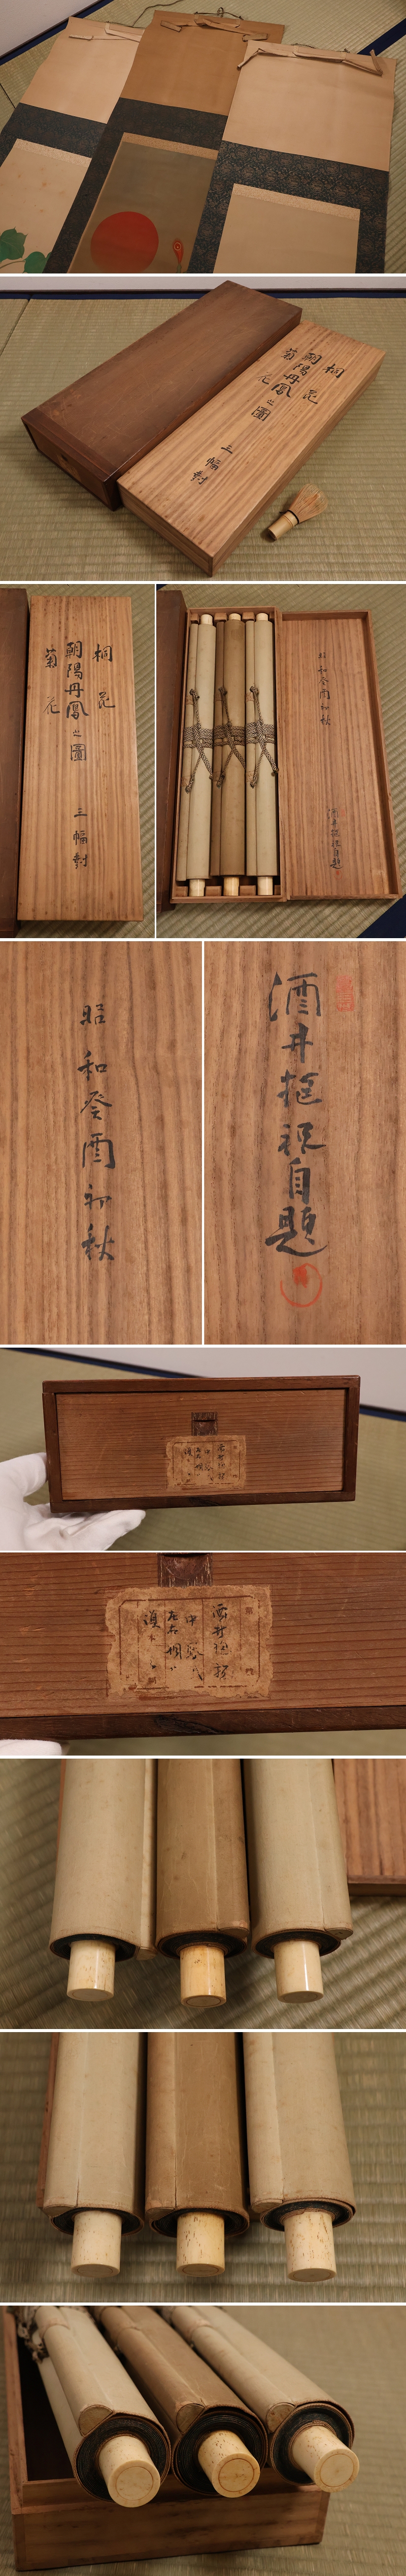 桐花
朝陽丹鳳之圖
菊花
三幅對
桐花
朝陽丹鳳之圖
菊花
三幅對
昭和癸酉初秋
酒井抱祝自題
昭和癸酉初秋
酒井抱祝自題
酒井抱祝
中
左右